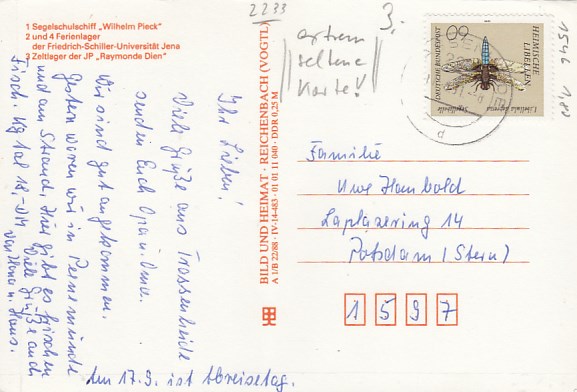 1 Segelschulschiff „Wilhelm Pieck“
2 und 4 Ferienlager
der Friedrich-Schiller-Universität Jena
3 Zeltlager der JP „Raymonde Dien“
2233
3.
extrem
seltene
Karte!
1546
1,80
60
HEIMISCHE
LIBELLEN
DEUTSCHE BUNDESPOST
Ihr Lieben!
Viele Grüße aus Trassenheide
senden Euch Opa u. Oma.
Wir sind gut angekommen.
Gestern waren wir in Peenemünde
und am Strand. Hier gibt es frischen
Fisch. Kg Aal 18,- DM
Viele Grüße auch
von Ilona u. Hans.
Am 17.9. ist Abreisetag.
BILD UND HEIMAT · REICHENBACH (VOGTL)
A 1/B 22/88 · IV-14-483 · 01 01 11 040 · DDR 0,25 M
Familie
Uwe Humbold
Laplacering 14
Potsdam (Stern)
1597